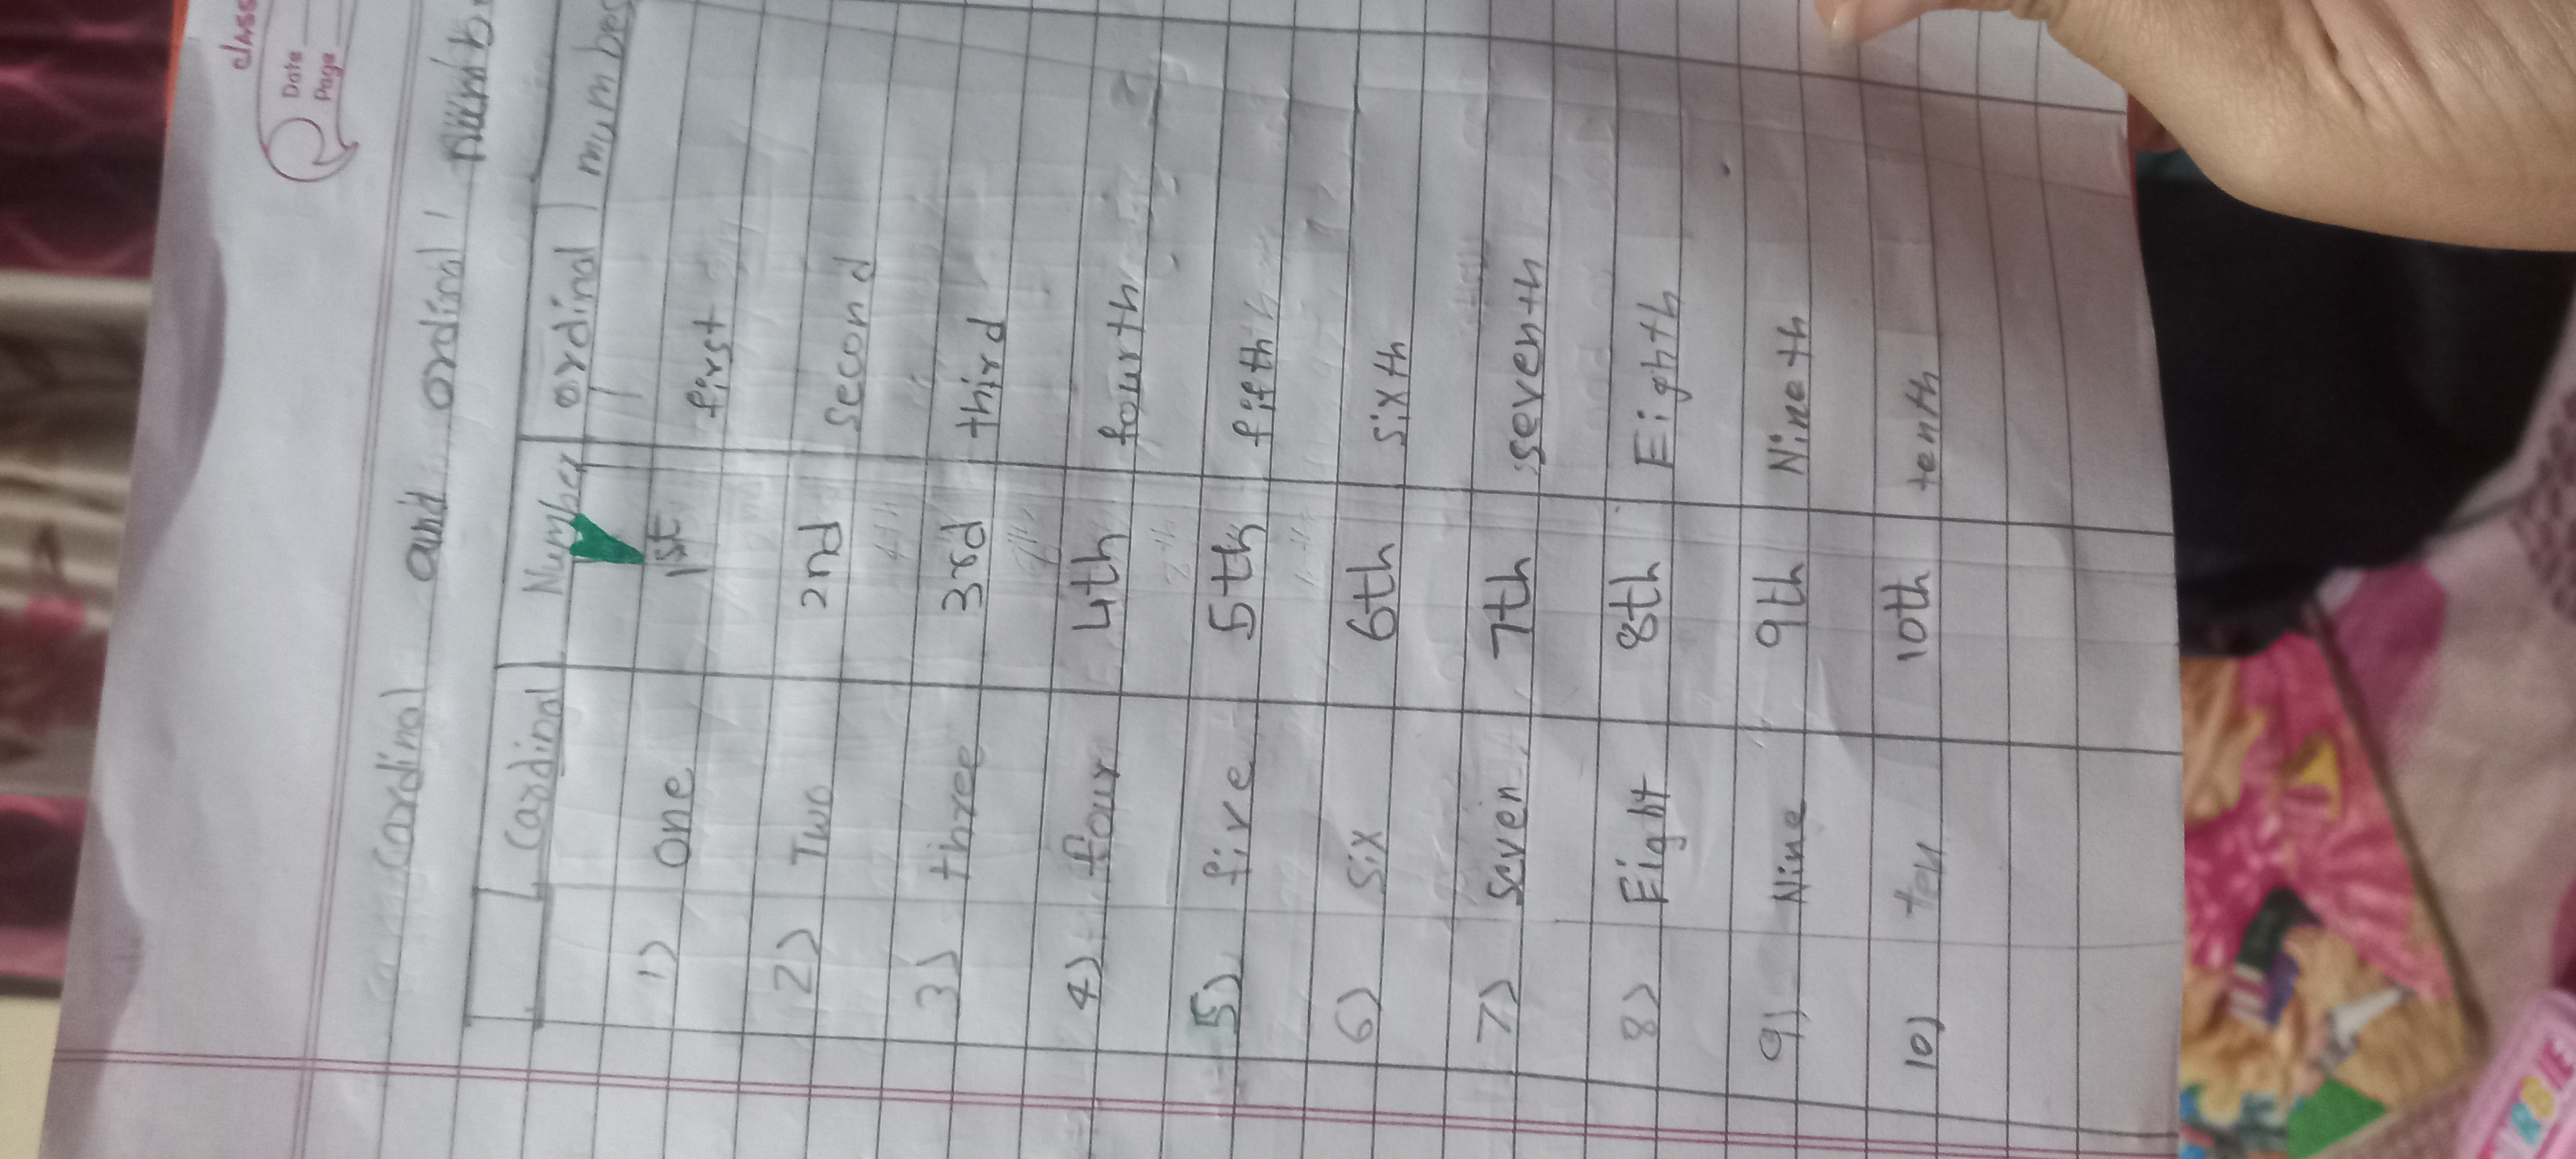 class
Date
Page
Cardinal and ordinal
Cardinal Number ordinal
1) One 1st first
2) Two 2nd second
3) three 3rd third
4) four 4th fourth
5) five 5th fifth
6) six 6th sixth
7) seven 7th seventh
8) Eight 8th Eighth
9) Nine 9th Nineth
10) ten 10th tenth